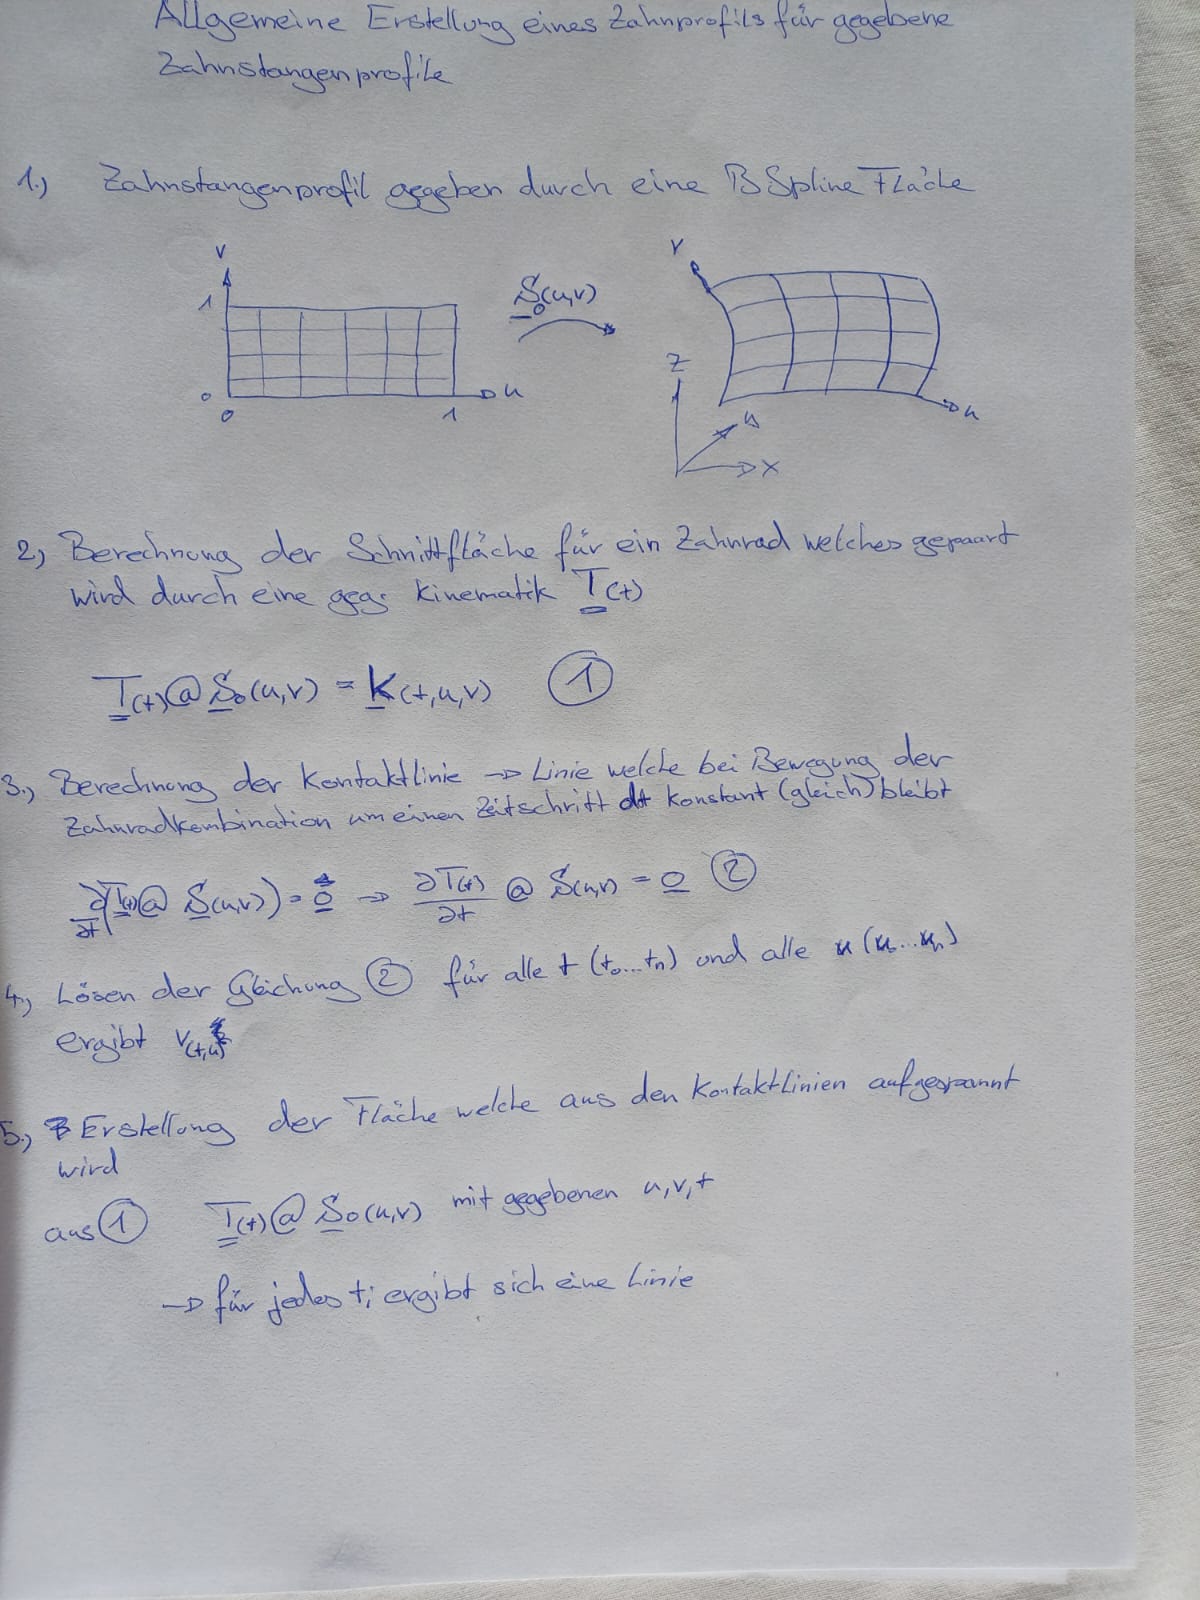 Allgemeine Erstellung eines Zahnprofils für gegebene
Zahnstangenprofile
1.) Zahnstangenprofil gegeben durch eine BSpline Fläche
v
1
0
0
1
u
S₀(u,v)
v
u
z
y
x
2.) Berechnung der Schnittfläche für ein Zahnrad welches gepaart
wird durch eine geg. Kinematik T(t)
T(t)@S₀(u,v) = K(t,u,v) ①
3.) Berechnung der Kontaktlinie → Linie welche bei Bewegung der
Zahnradkombination um einen Zeitschritt dt konstant (gleich) bleibt
∂/∂t (T(t)@ S(u,v)) = 0 → ∂T(t)/∂t @ S(u,v) = 0 ②
4.) Lösen der Gleichung ② für alle t (t₀...tₙ) und alle u (u₀...uₙ)
ergibt v(t,u)
5.) Erstellung der Fläche welche aus den Kontaktlinien aufgespannt
wird
aus ① T(t)@ S₀(u,v) mit gegebenen u,v,t
→ für jedes tᵢ ergibt sich eine Linie